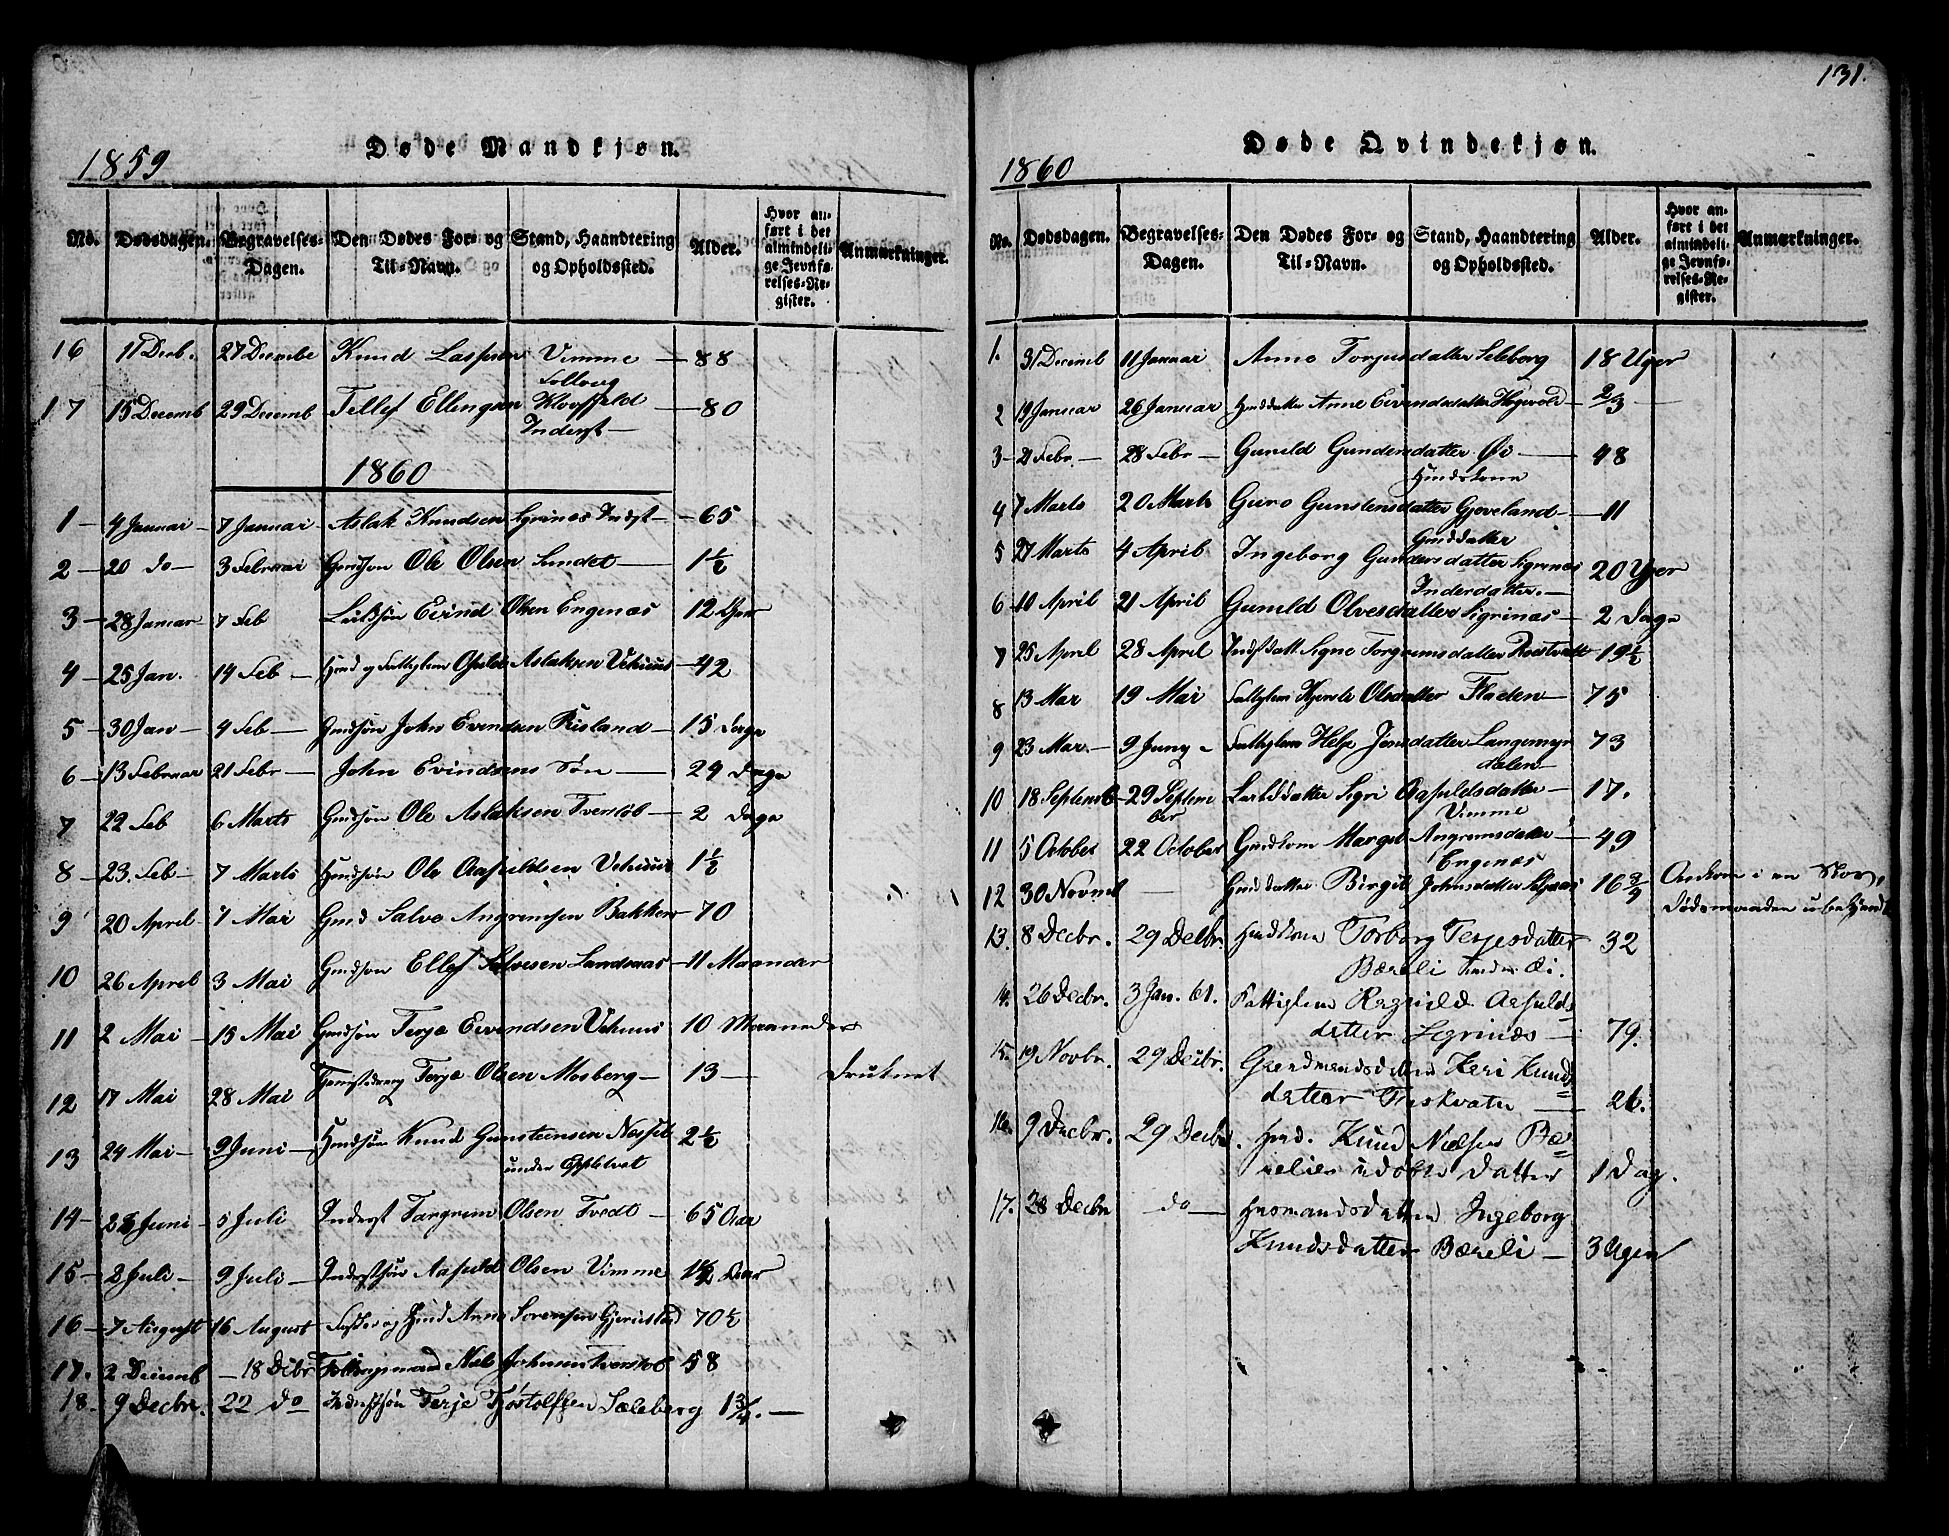 131.
1859
Døde Mandkjøn.
No. Dødsdagen. Begravelses-Dagen. Den Dødes For- og Til-Navn. Stand, Haandtering og Opholdssted. Alder. Hvor anført i det almindelige Jevnførelses-Register. Anmærkninger.
16 11 Decb. 27 Decembe Knud Vimme — 88
17 15 Decemb 29 Decemb Tellef Ellingsen Inderst — 80
1860
1 — 4 Januar — 7 Januar Aslak Knudsen Egrinæs Indst — 65
2 — 20 do — 3 Februar Gmdsøn Ole Olsen Sundet — 1½
3 — 28 Januar 7 Feb Eivind Olsen Engenæs 12 Uger
4 — 25 Jan. 14 Feb — Aslaksen Vehuus — 42
5 — 30 Jan — 4 Feb — Gmdsøn John Evendsen Risland — 15 Dage
6 — 13 Februar 21 Febr — John Evindsens Søn — 24 Dage
7 22 Feb 6 Marts Gmdsøn Ole Aslaksen Tveitøb — 2 Dage
8 — 23. Feb — 7 Marts Hmdsøn Ole Aasuldsen Vehuus 1½
9 20 April — 7 Mai Gmd Salve Angrimsen Bakken — 70
10 26 April 3 Mai Gmdsøn Ellef Salvesen Landsaas — 11 Maander
11 2 Mai — 15 Mai Gmdsøn Terje Evendsen Vehuus 10 Maaneder
12 17 Mai 28 Mai Terje Olsen Mosberg — 13 — Druknet
13 24 Mai — 9 Juni — Hmdsøn Knud Gunsteensen 2½
under Eppletvet
14 — Juni — 5 Juli Inderst Targrim Olsen Tvedt — 65 Aar
15 — 2 Juli — 9 Juli — Inderstsøn Aasuld Olsen Vimme 1½ Aar
16 — 7 August 16 August Sørensen Gjerustad 70½
17. 2 Decemb — 18 Decbr Niels Johnsen 58
18. 9 Decbr. 22 do Inderstsøn Terje Tjøstolfsen Sæleberg 1¾. —
1860
Døde Qvindekjøn.
No. Dødsdagen. Begravelses-Dagen. Den Dødes For- og Til-Navn. Stand, Haandtering og Opholdssted. Alder. Hvor anført i det almindelige Jevnførelses-Register. Anmærkninger.
1. 31 Decemb 11 Januar Anne Torjusdatter Seleborg 18 Uger
2 19 Januar 26 Januar Hmddatter Anne Eivindsdatter — ⅔ —
3 — 21 Febr. — 28 Febr — Gunild Gundersdatter Øi — 48
Hmdskone
4 7 Marts 20 Marts Guro Gunstensdatter Gjoveland — 11
Gmddatter
5 27 Marts 4 April Ingeborg Gundersdatter Egrinæs 20 Uger
Inderdatter. —
6 10 April 21 April Gunild Olvesdatter Egrinæs — 2 Dage
7 25 April 28 April Signe Torgrimsdatter — 19½
8 13 Mai 19 Mai Fattiglem Olsdatter Fladen — 75
9 23 Mai — 9 Juny — Fattiglem Helje Jensdatter Langemyr 73
dalen —
10 18 Septemb 29 Septem Sigri Aasuldsdatter — 17.
ber Vimme
11 5 October 22 October Gmdkone Margit Angrimsdatter — 49
Engenæs
12 30 Novmb — Gmddatter Birgit Johnsdatter 16 Omkom i en Skov,
Dødsmaaden ubekjendt
13. 8 Decbr. 29 Decbr. Hmdkone Torborg Terjesdatter 32
Bæreli under Øi.
14. 26 Decbr. 3 Jan. 61. Fattiglem Ragnild Aasulds-
datter Egrinæs — 79.
15. 19 Novbr. 29 Decbr. Gaardmandsdatter Keri Knuds-
datter — 26.
16. 9 Decbr. 29 Decbr. Hmd. Knud Nielsen Bæ-
relies udøbte Datter 1 Dag.
17. 28 Decbr do — Husmandsdatter Ingeborg
Knudsdatter Bæreli — 3 Uger